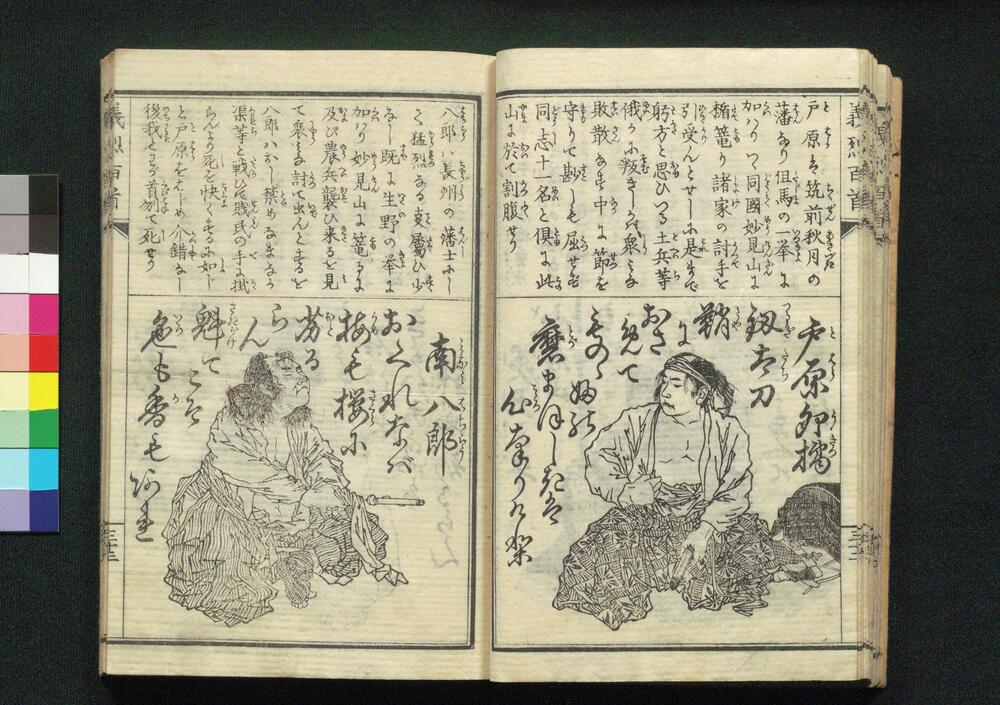 義烈百首
戸原は筑前秋月の
藩なり但馬の一挙に
加はりて同國妙見山に
楯篭り諸家の討手を
引受んとせしに是まで
躬方と思ひつる土兵等
俄かに叛きしかば衆みな
敗散なす中に節を
守りて尠しも屈せず
同志十一名と倶に此
山に於て割腹せり
戸原卯橘
釼太刀
鞘に
おさめて
ものゝふの
心
三十二
八郎ハ長州の藩士にし
て猛烈なる
なし既に生野の挙に
加はり妙見山に篭るに
及び農兵襲ひ来るを見
て衆みな討て出んとするを
八郎ハおしと禁め
渠等と戦ひ賎民の手に掛
らんより死を快くするに如じ
と戸原をはじめ介錯なし
後我とわが首刎て死せり
南八郎
おくれなバ
梅も櫻に
劣るらん
魁てこそ
色も香も
あれ
三十三
義烈百首